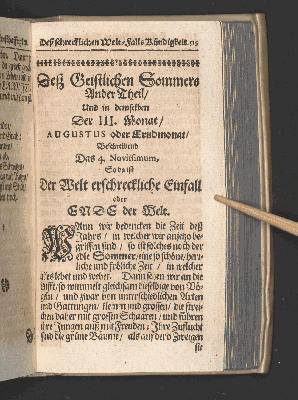 Deß schrecklichen Welt-Falls Kündigkeit. 95
Deß Geistlichen Sommers
Ander Theil/
Und in demselben
Der III. Monat/
AUGUSTUS oder Erndmonat/
Beschreibend
Das 4. Novissimum,
So da ist
Der Welt erschreckliche Einfall
oder
ENDE der Welt.
WAnn wir bedencken die Zeit deß
Jahrs / in welcher wir anjetzo be-
griffen sind / so ist solches noch der
edle Sommer / eine so schöne / herr-
liche und fröliche Zeit / in welcher
alles lebet und webet. Dann sehen wir an die
Lüffte / so wimmelt gleichsam dieselbige von Vö-
geln / und zwar von unterschiedlichen Arten
und Gattungen / kleinen und grossen / die strei-
chen daher mit grossen Schaaren / und führen
ihre Jungen auß mit Freuden: Ihre Zuflucht
sind die grüne Bäume / als auf derer Zweigen
sie